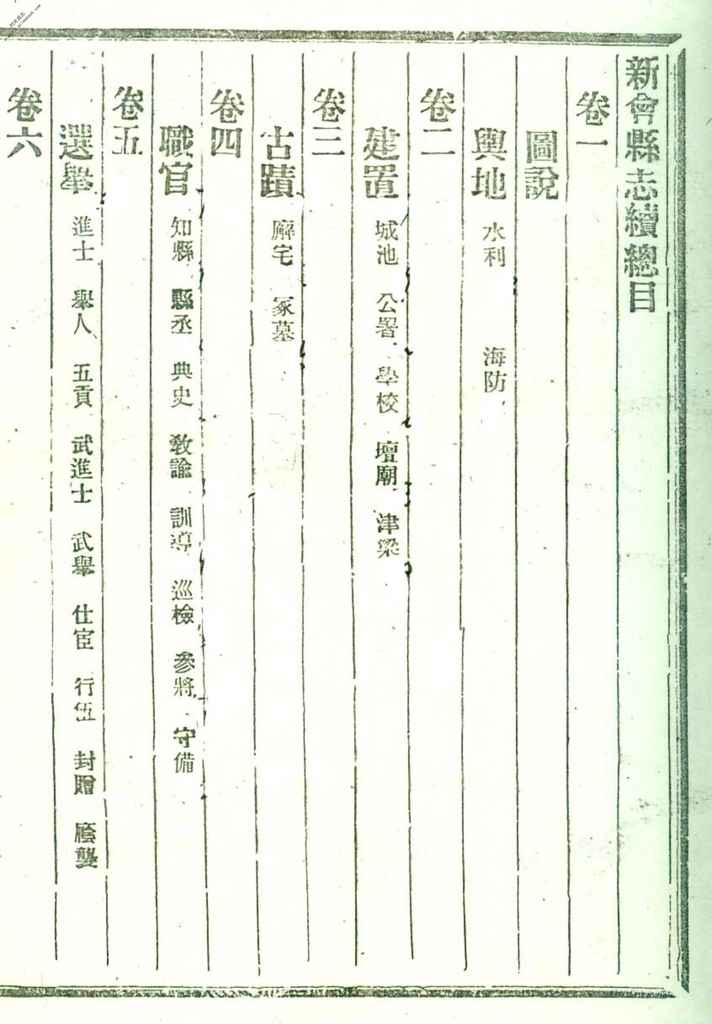 新會縣志續總目
卷一
圖說
輿地 水利 海防
卷二
建置 城池 公署 學校 壇廟 津梁
卷三
古蹟 廨宅 冢墓
卷四
職官 知縣 縣丞 典史 敎諭 訓導 巡檢 參將 守備
卷五
選舉 進士 舉人 五貢 武進士 武舉 仕宦 行伍 封贈 廕襲
卷六